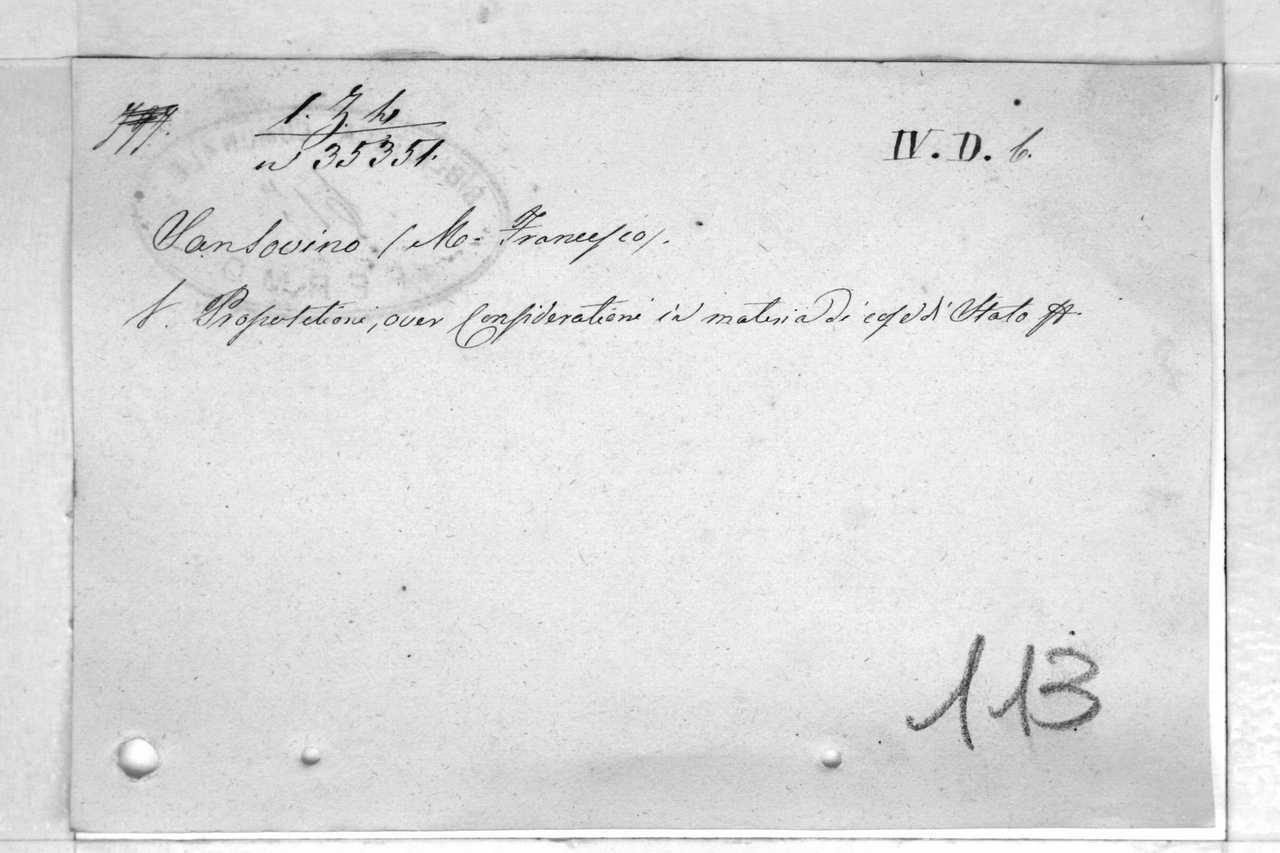 1. Z. h
n 35351.
IV. D. 6.
Sansovino (M. Francesco).
1. Propositioni, over Considerationi in materia di cose di Stato
113